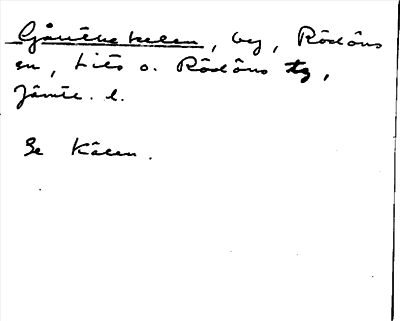 Gåvelhskelen, by, Rödöns
sn, Lits o. Rödöns tg,
Jämtl. l.
Se Kälen.